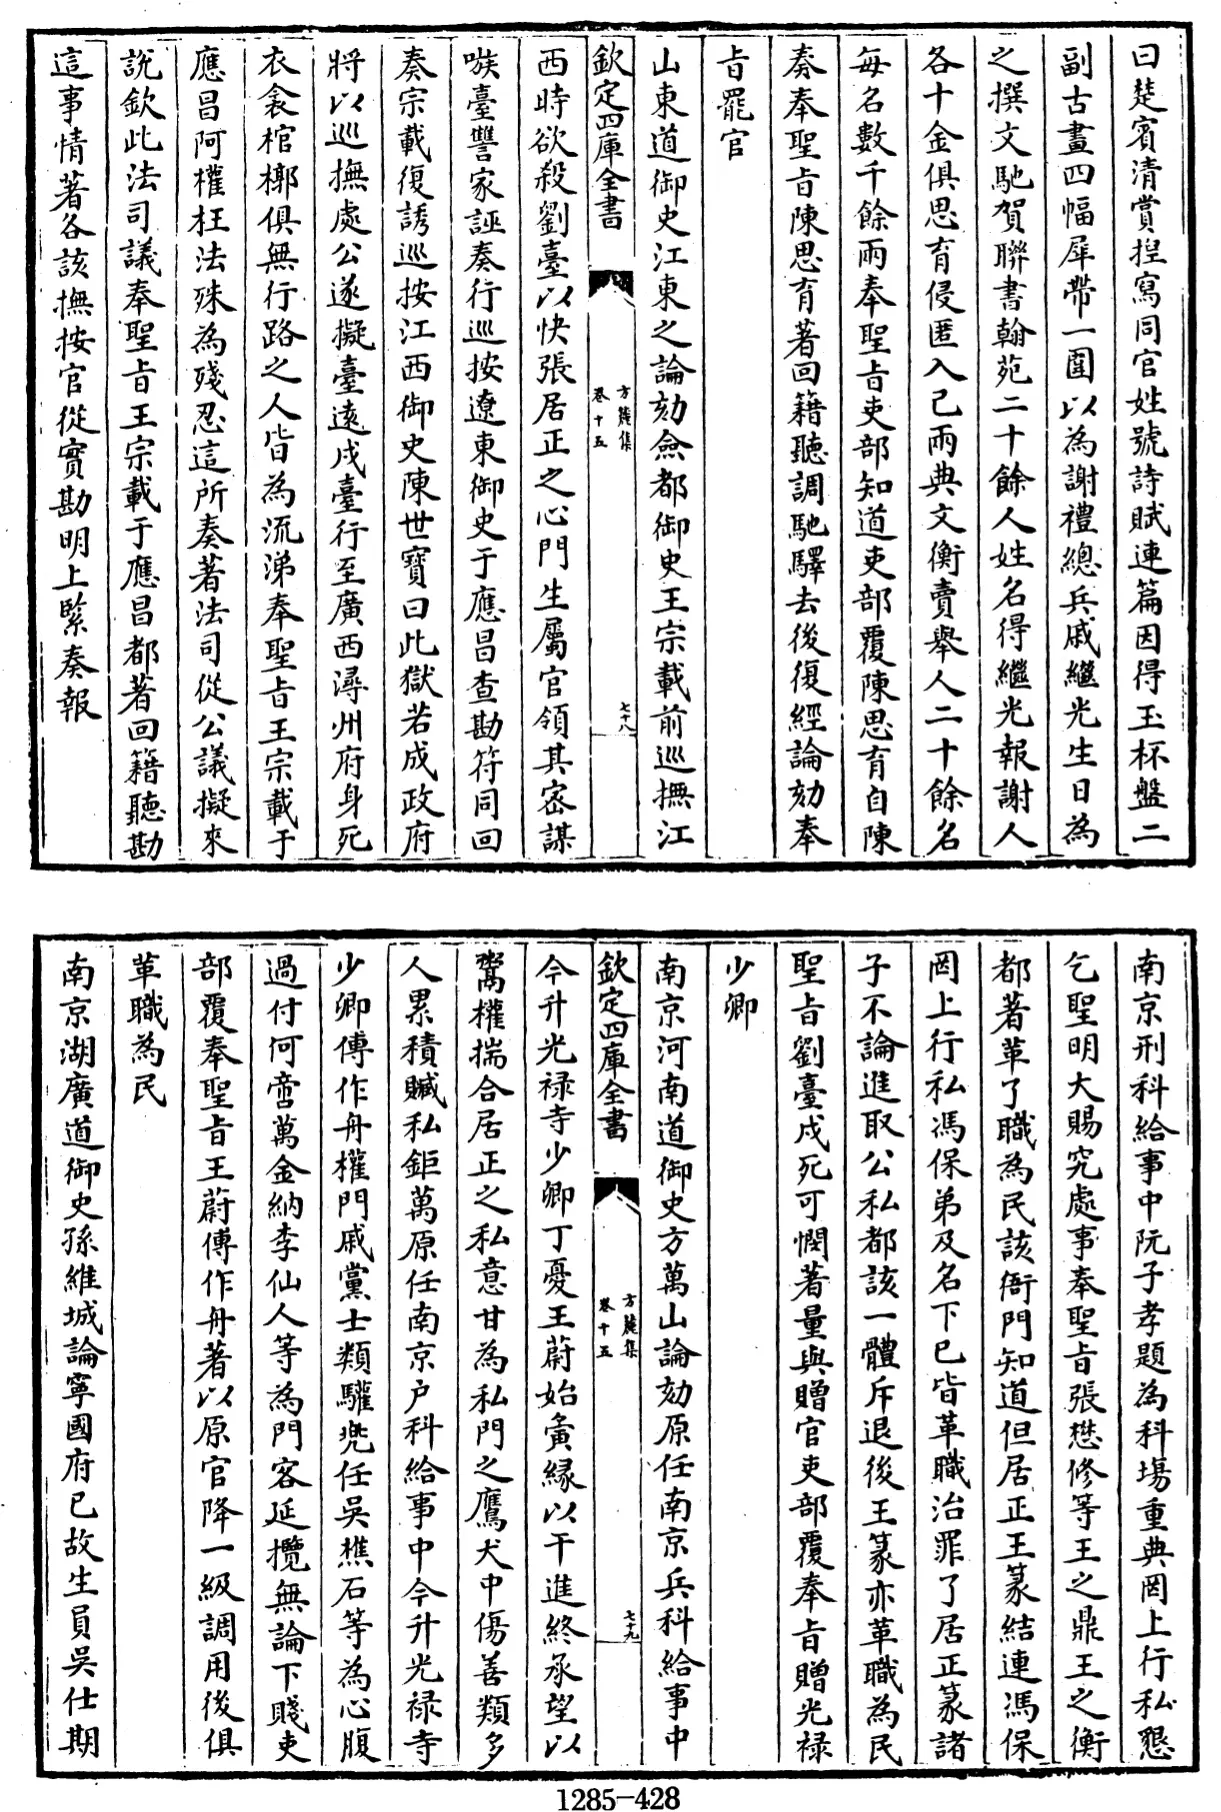 曰楚賓清賞揑寫同官姓號詩賦連篇因得玉杯盤二
副古畫四幅犀帶一圍以為謝禮總兵戚繼光生日為
之撰文馳賀聯書翰苑二十餘人姓名得繼光報謝人
各十金俱思育侵匿入己兩典文衡賣舉人二十餘名
每名數千餘兩奉聖旨吏部知道吏部覆陳思育自陳
奏奉聖旨陳思育著回籍聽調馳驛去後復經論劾奉
旨罷官
山東道御史江東之論劾僉都御史王宗載前巡撫江
欽定四庫全書
方麓集
卷十五
七十八
西時欲殺劉臺以快張居正之心門生屬官領其密謀
嗾臺讐家誣奏行巡按遼東御史于應昌查勘符同回
奏宗載復誘巡按江西御史陳世寶曰此獄若成政府
將以巡撫處公遂擬臺遠戍臺行至廣西潯州府身死
衣衾棺槨俱無行路之人皆為流涕奉聖旨王宗載于
應昌阿權枉法殊為殘忍這所奏著法司從公議擬來
說欽此法司議奉聖旨王宗載于應昌都著回籍聽勘
這事情著各該撫按官從實勘明上緊奏報
南京刑科給事中阮子孝題為科場重典罔上行私懇
乞聖明大賜究處事奉聖旨張懋修等王之鼎王之衡
都著革了職為民該衙門知道但居正王篆結連馮保
罔上行私馮保弟及名下已皆革職治罪了居正篆諸
子不論進取公私都該一體斥退後王篆亦革職為民
聖旨劉臺戍死可憫著量與贈官吏部覆奉旨贈光祿
少卿
南京河南道御史方萬山論劾原任南京兵科給事中
欽定四庫全書
方麓集
卷十五
七十九
今升光祿寺少卿丁憂王蔚始夤縁以干進終承望以
鬻權揣合居正之私意甘為私門之鷹犬中傷善類多
人累積贓私鉅萬原任南京户科給事中今升光祿寺
少卿傅作舟權門戚黨士類驩兠任吳樵石等為心腹
過付何啻萬金納李仙人等為門客延攬無論下賤吏
部覆奉聖旨王蔚傅作舟著以原官降一級調用後俱
革職為民
南京湖廣道御史孫維城論寧國府已故生員吳仕期
1285-428